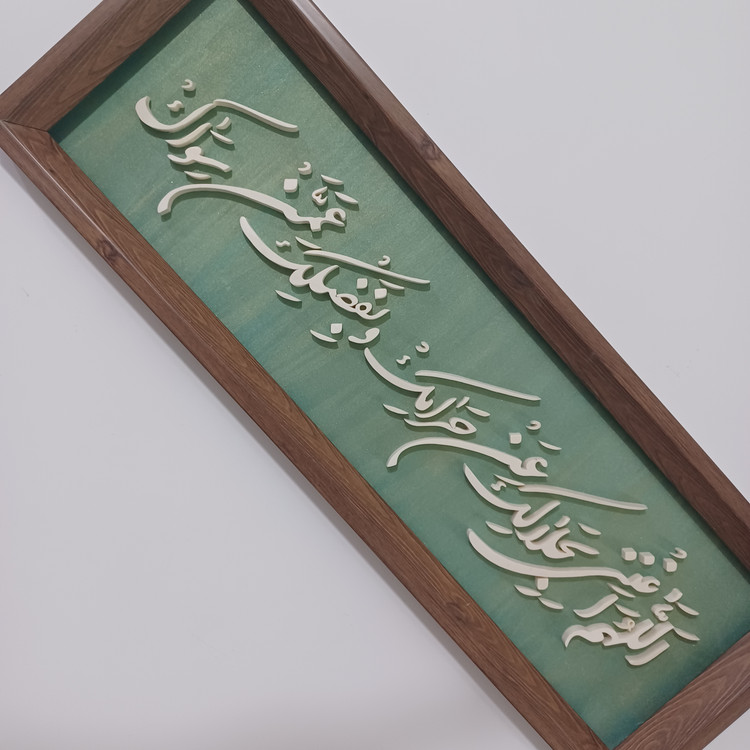 اَللّهُمَّ اَغْنِنی بِحَلالِکَ عَنْ حَرامِکَ وَ بِفَضْلِکَ عَمَّنْ سِواکَ